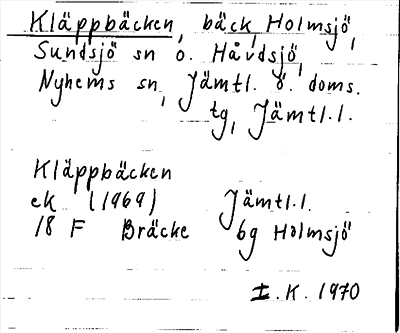 Kläppbäcken, bäck, Holmsjö,
Sundsjö sn o. Håvdsjö,
Nyhems sn, Jämtl. ö. doms.
tg, Jämtl.l.
Kläppbäcken
ek (1969) Jämtl.l.
18 F Bräcke 6g Holmsjö
I.K. 1970